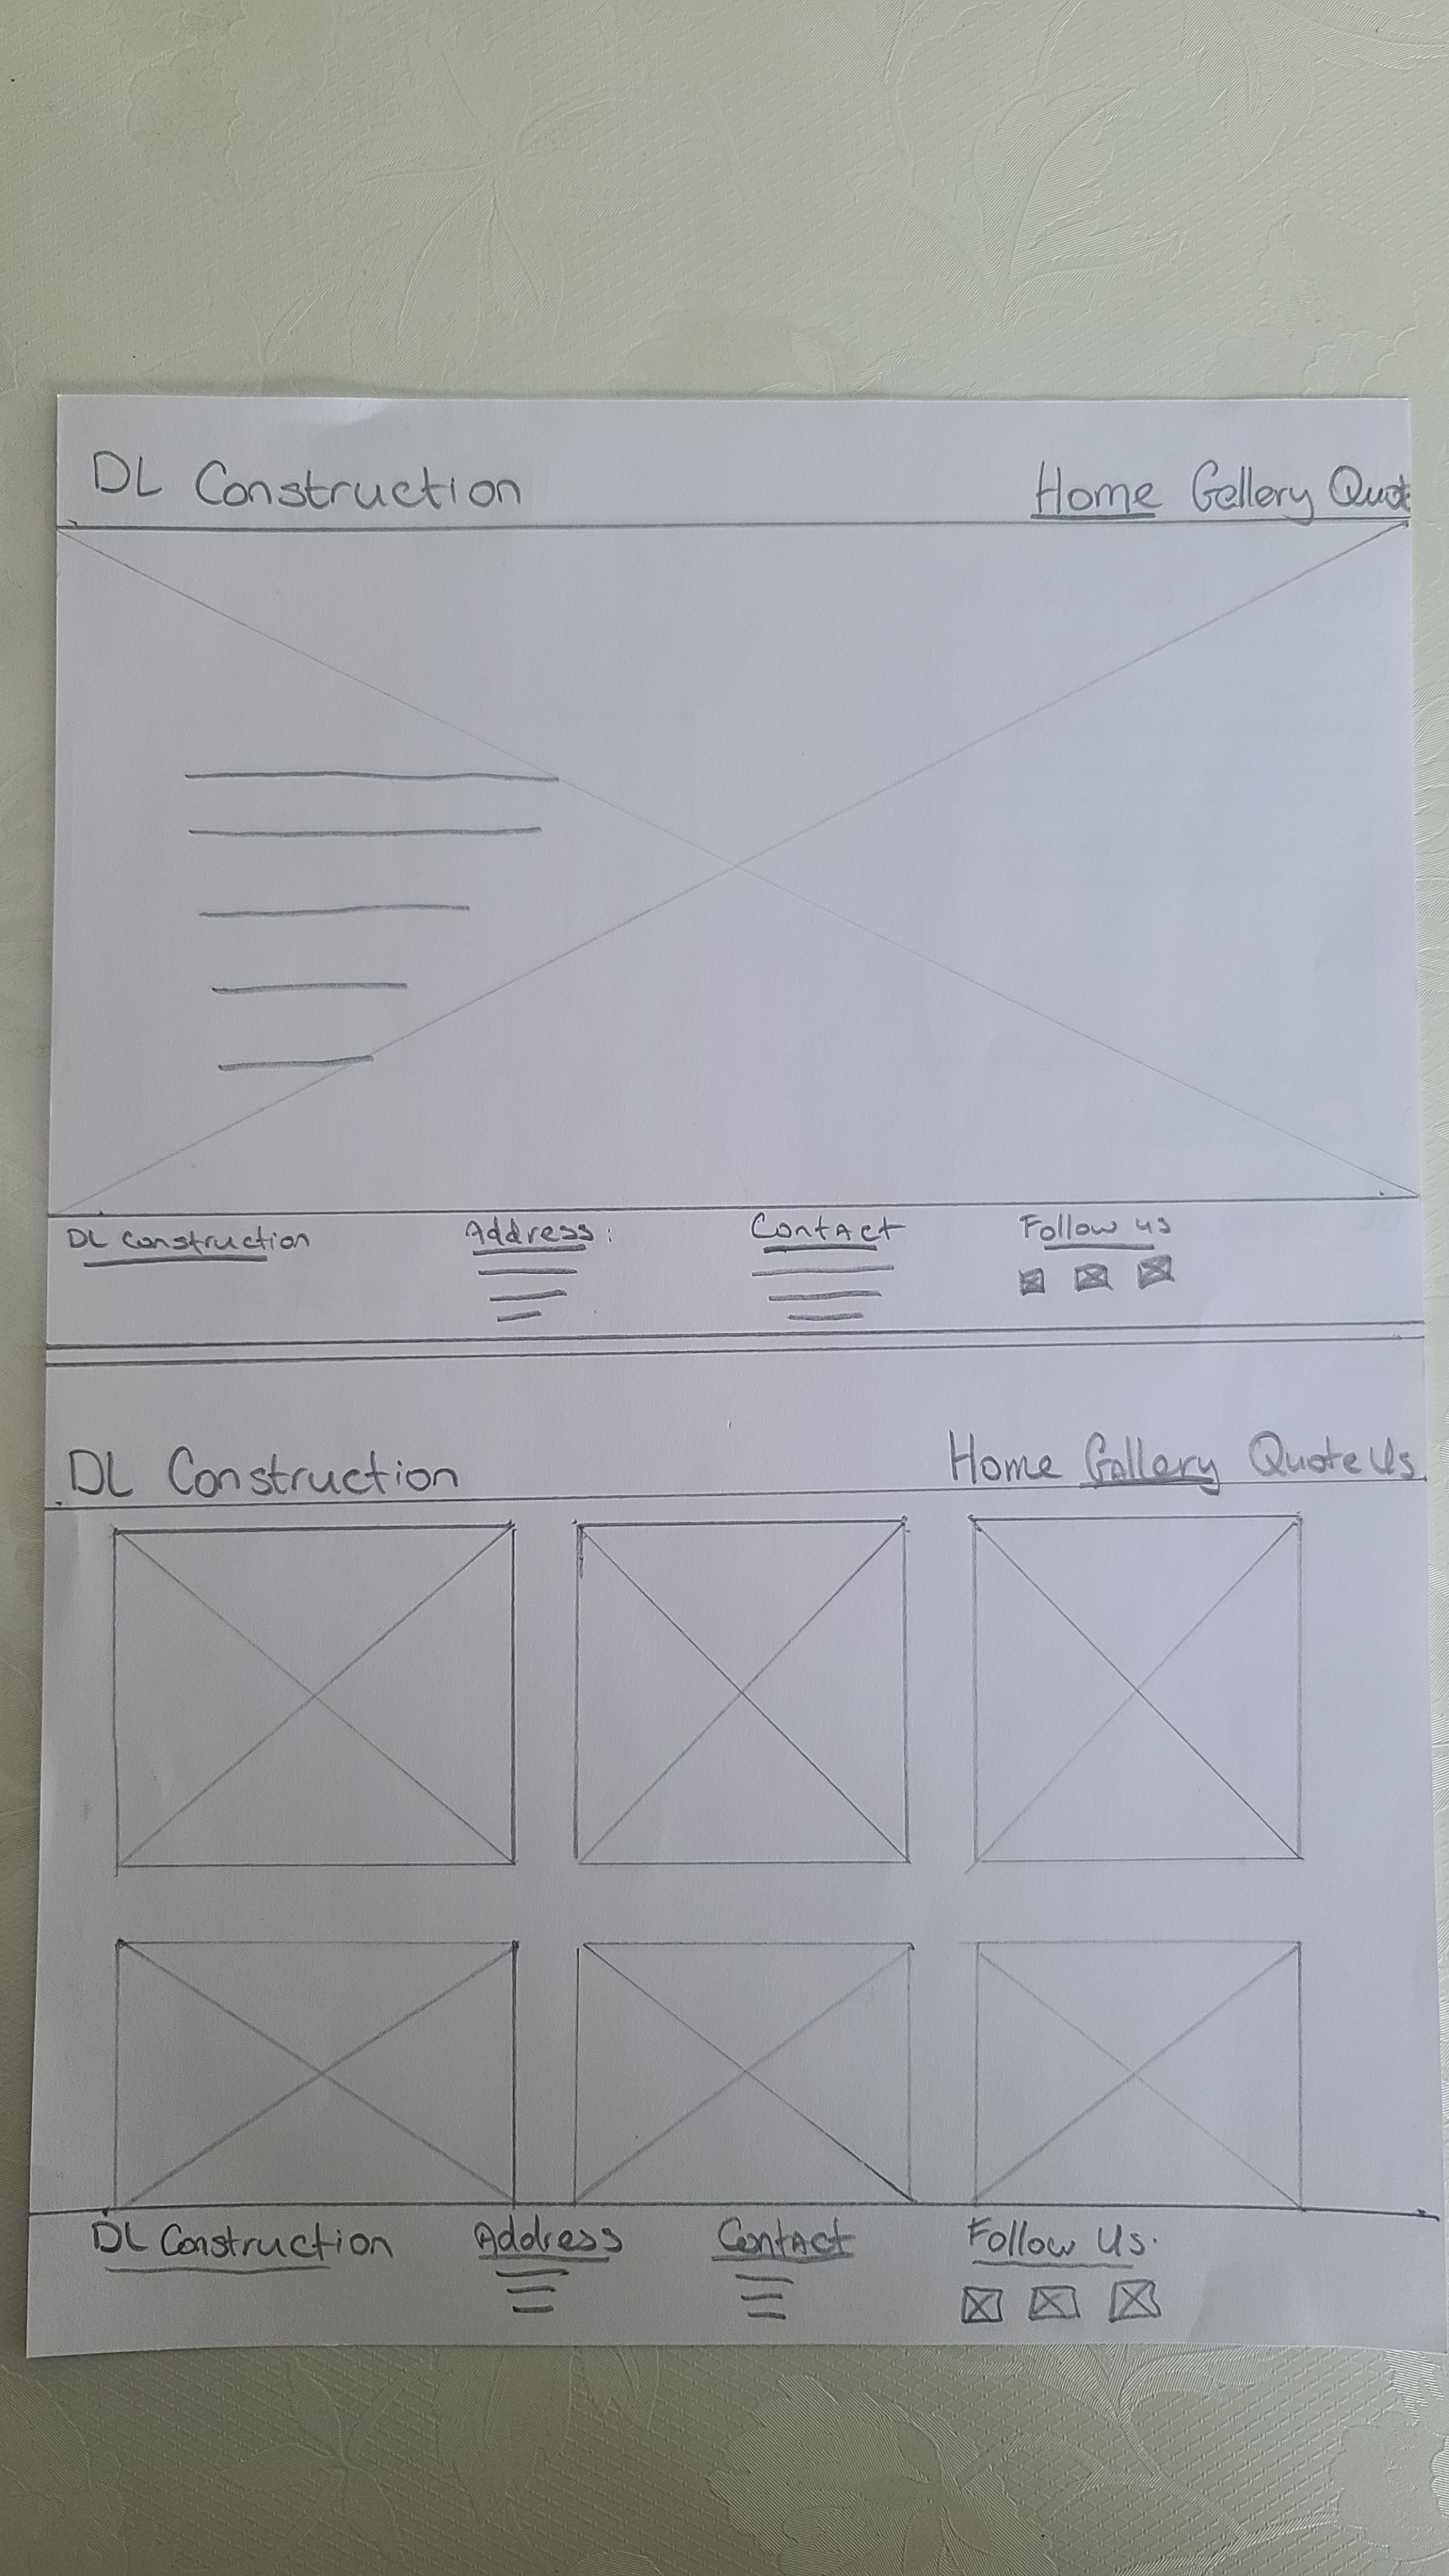 DL Construction Home Gallery Quot
DL Construction Address: Contact Follow us
DL Construction Home Gallery Quote Us
DL Construction Address Contact Follow Us.